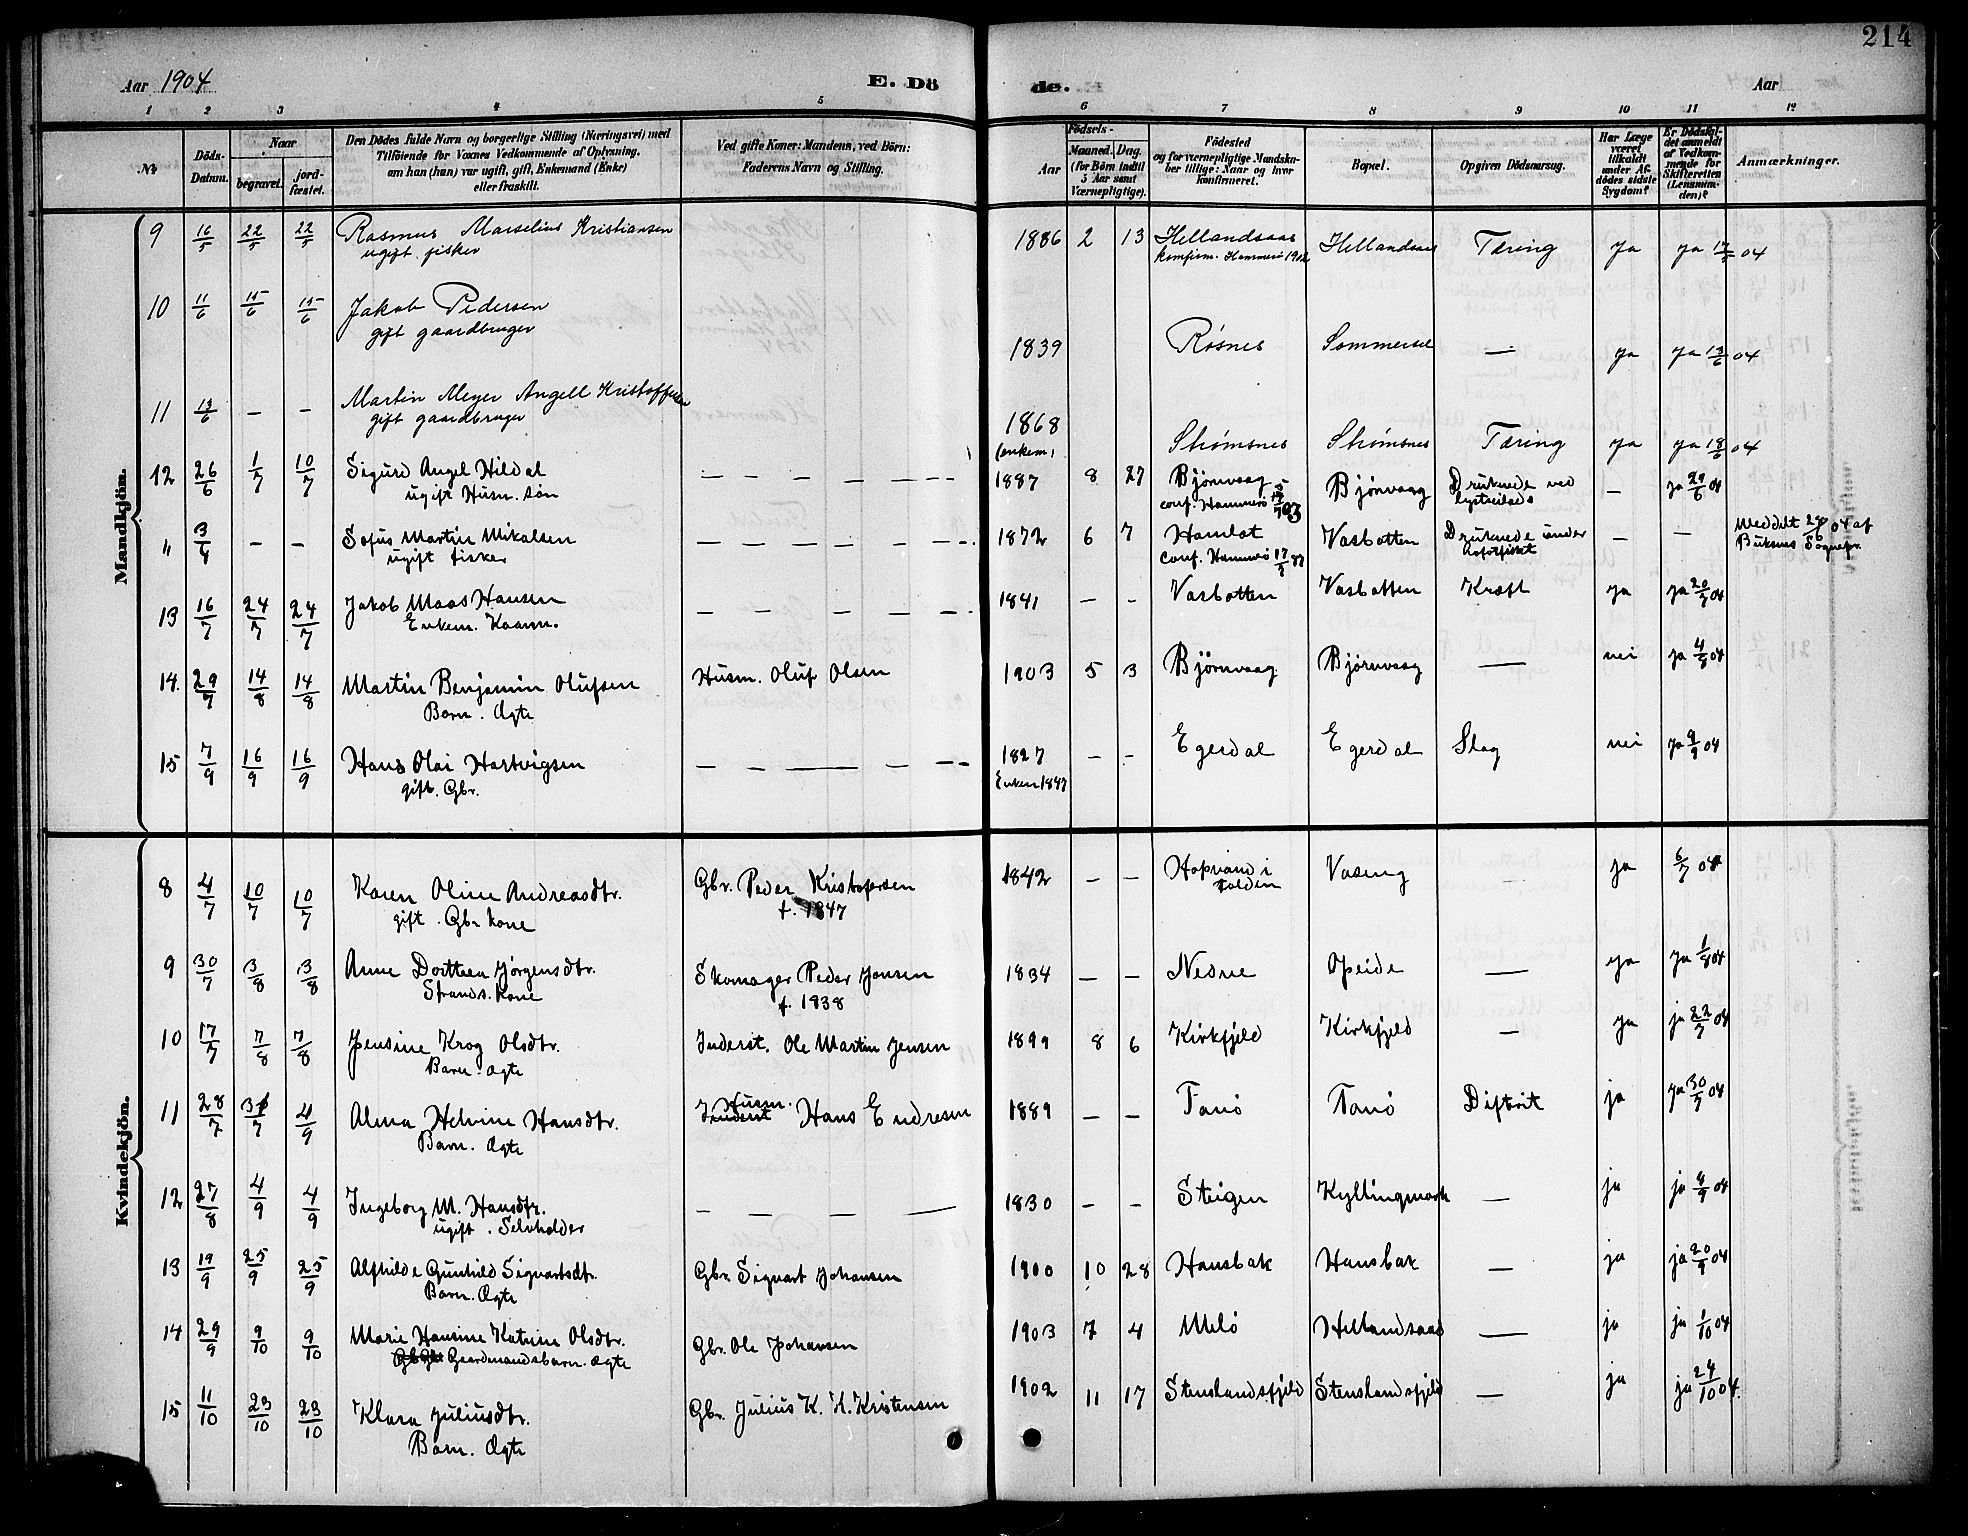 214
Aar 1904 E. Dö de. Aar
1 2 3 4 5 6 7 8 9 10 11 12
№ Döds-Datum. Naar begravet. jordfæstet. Den Dödes fulde Navn og borgerlige Stilling (Næringsvei) med Tilföiende for Voxnes Vedkommende af Oplysning, om han (hun) var ugift, gift, Enkemand (Enke) eller fraskilt. Ved gifte Koner: Mandens, ved Börn: Faderens Navn og Stilling. Födsels- Aar Maaned. Dag. (for Börn indtil 5 Aar samt Værnepligtige). Födested og for værnepligtige Mandskaber tillige: Naar og hvor konfirmeret. Bopæl. Opgiven Dödsaarsag. Har Læge været tilkaldt under Afdödes sidste Sygdom? Er Dödsfaldet anmeldt af Vedkommende for Skifteretten (Lensmanden)? Anmærkninger.
Mandkjön.
9 16/5 22/5 22/5 Rasmus Marselius Kristiansen 1886 2 13 Hellandsaas Hellandsaas Tæring ja ja 17/5 04
ugift fisker konfirm. Hammerø 1902
10 11/6 15/6 15/6 Jakob Pedersen
gift gaardbruger 1839 Røsnes Sommersel — ja ja 13/6 04
11 13/6 – – Martin Meyer Angell Kristoffersen
gift gaardbruger 1868 Strømsnes Strømsnes Tæring ja ja 18/6 04
(enkem)
12 26/6 1/7 10/7 Sigurd Angel Hildal — — — — — — 1887 8 27 Bjørnvaag Bjørnvaag Druknede ved – ja 29/6 04
ugift Husm. søn conf. Hammerö 03 lystseilads
" 3/4 – – Sofus Martin Mikalsen — — — — — — 1872 6 7 Hamlot Vasbotten Druknede under – — Meddelt 04 af
ugift fisker conf. Hammerö 17/7 Buksnes Sognepr.
13 16/7 24/7 24/7 Jakob Maas Hansen — — — — — — 1841 – – Vasbotten Vasbotten Kræft ja ja 20/7 04
Enkem. Kaarm.
14. 29/7 14/8 14/8 Martin Benjamin Olufsen Husm. Oluf Olsen 1903 5 3 Bjørnvaag Bjørnvaag — nei ja 4/8 04
Barn. Ægte
15 7/9 16/9 16/9 Hans Olai Hartvigsen — — — — — — 1827 – – Egerdal Egerdal Slag nei ja 9/9 04
gift. Gbr. Enken 1847
Kvindekjön.
8 4/7 10/7 10/7 Karen Oline Andreasdtr. Gbr. Peder Kristofersen 1842 – – Hopvand i Folden Vaseng — ja 6/7 04
gift. Gbr kone f. 1847
9 30/7 3/8 3/8 Anne Dorthea Jørgensdtr. Skomager Peder Jensen 1834 – – Nesne Opeide — ja ja 1/8 04
Strands. Kone f. 1838
10 17/7 7/8 7/8 Jensine Krog Olsdtr. Inderst. Ole Martin Jensen 1899 8 6 Kirkfjeld Kirkfjeld — ja ja 22/7 04
Barn. Ægte
11 28/7 4/9 Alma Helvine Hansdtr. Husm. Inderst Hans Endresen 1889 – – Tanö Tanö Difterit ja ja 30/7 04
Barn. Ægte
12 27/8 4/9 4/9 Ingeborg M. Hansdtr. — — — — 1830 – – Steigen Kyllingmark — ja ja 8/9 04
ugift. Selvholder
13 19/9 25/9 25/9 Alfhilde Gunhild Sigvartsdtr. Gbr. Sigvart Johansen 1900 10 28 Hansbak Hansbak — ja ja 20/9 04
Barn. Ægte
14 29/9 9/10 9/10 Marie Hansine Katrine Olsdtr. Gbr. Ole Johansen 1903 7 4 Melö Hellandsaas — ja ja 1/10 04
Gaardmandsbarn. Ægte
15 11/10 23/10 23/10 Klara Juliusdtr. Gbr. Julius K. H. Kristensen 1902 11 17 Stenslandsfjeld Stenslandsfjeld — ja ja 24/10 04.
Barn. Ægte